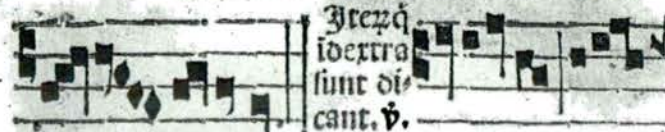 Iterꝙ̃
idextra
sunt di⸗
cant. ℣.